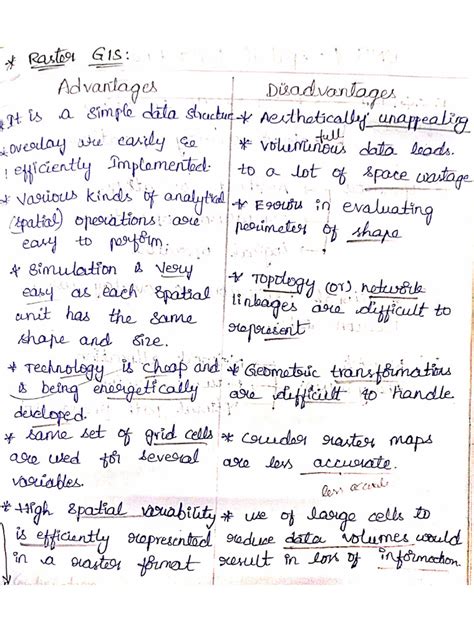 * Raster GIS:
Advantages
* It is a simple data structure
* overlay are easily &
efficiently Implemented.
* Various kinds of analytical
(spatial) operations are
easy to perform.
* Simulation is very
easy as each spatial
unit has the same
shape and size.
* Technology is cheap and
is being energetically
developed.
* same set of grid cells
are used for several
variables.
* High spatial variability
is efficiently represented
in a raster format
Disadvantages
* Aesthetically unappealing
full
* voluminous data leads.
to a lot of space wastage
* Errors in evaluating
perimeter of shape
* Topology (or) network
linkages are difficult to
represent
* Geometric transformations
are difficult to handle
* Cruder raster maps
are less accurate.
less accurate
* use of large cells to
reduce data volumes would
result in loss of information.